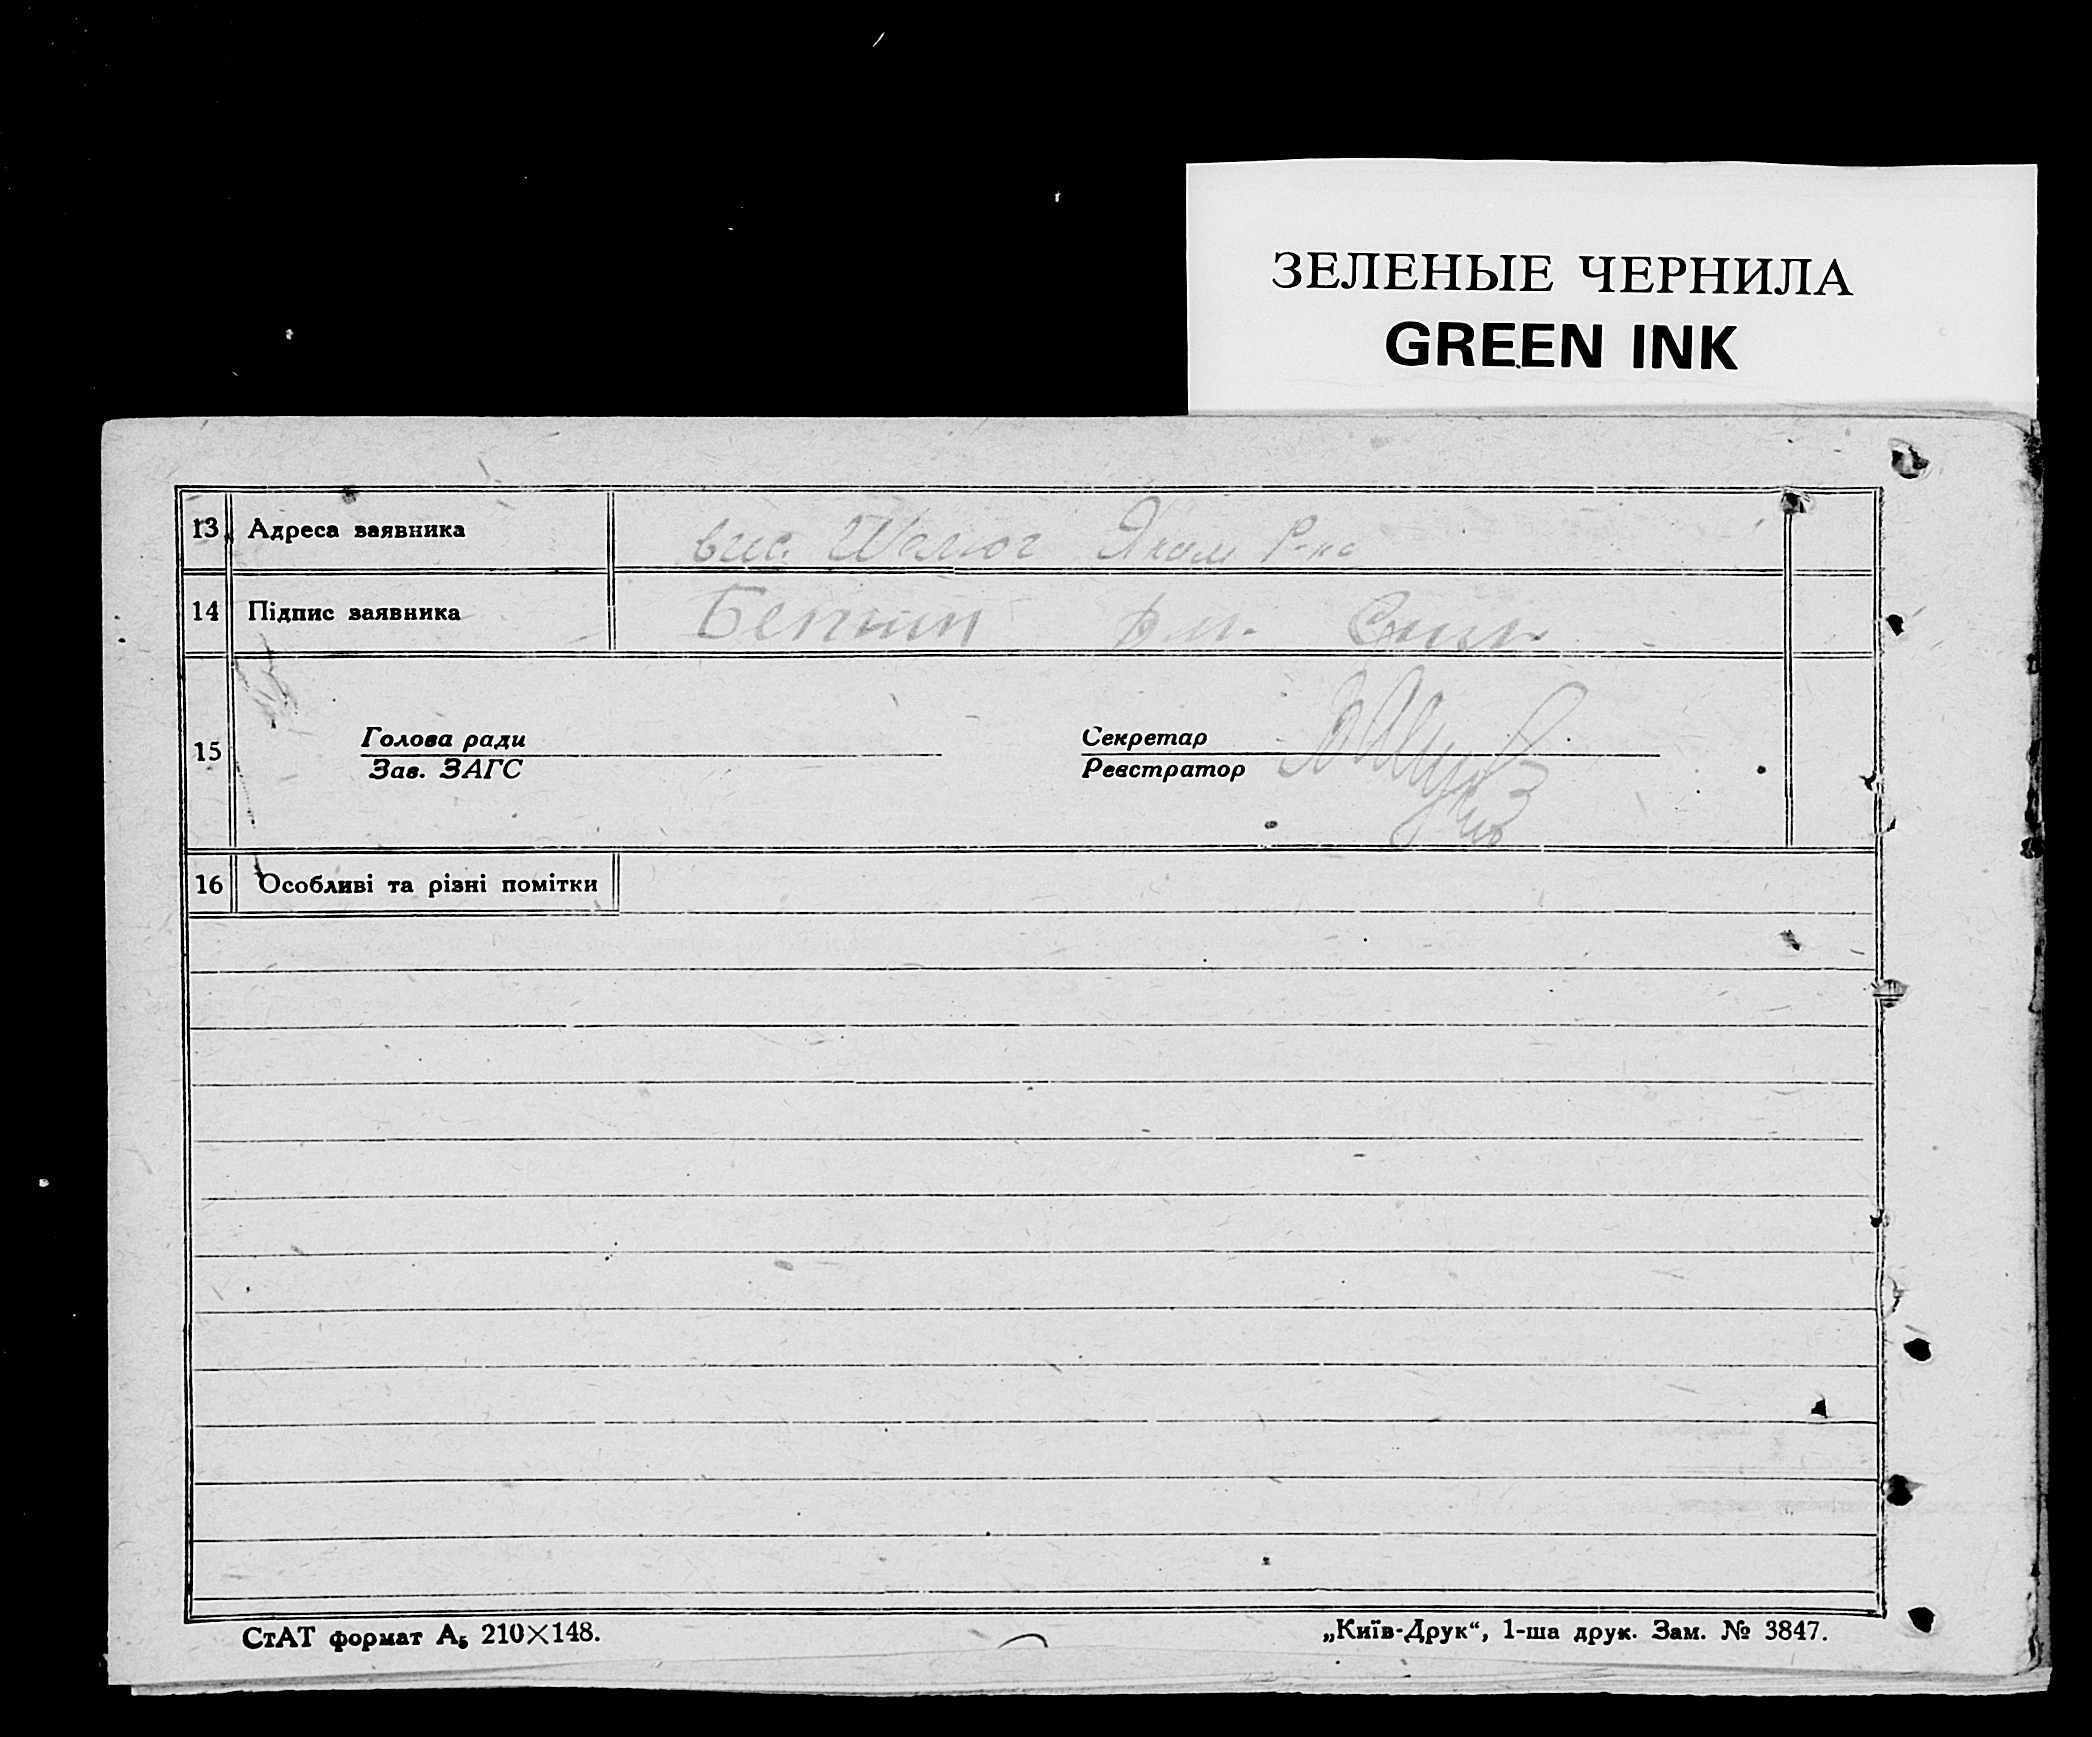 ЗЕЛЕНЫЕ ЧЕРНИЛА
GREEN INK
13 Адреса заявника вис. Р-на
14 Підпис заявника
15 Голова ради Секретар
Зав. ЗАГС Реєстратор
16 Особливі та різні помітки
СтАТ формат А₅ 210×148. „Київ-Друк“, 1-ша друк. Зам. № 3847.